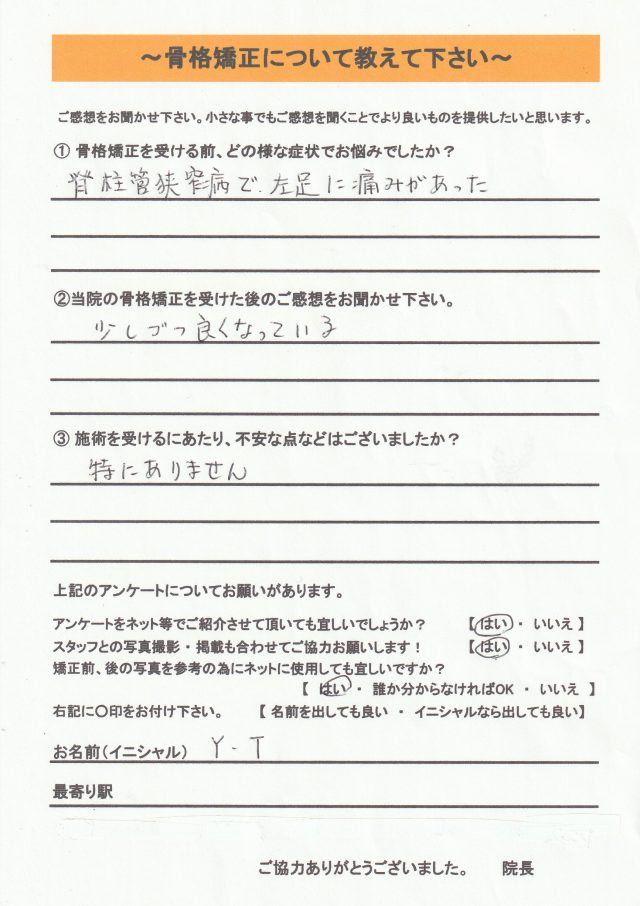 ～骨格矯正について教えて下さい～
ご感想をお聞かせ下さい。小さな事でもご感想を聞くことでより良いものを提供したいと思います。
① 骨格矯正を受ける前、どの様な症状でお悩みでしたか？
脊柱管狭窄病で、左足に痛みがあった
②当院の骨格矯正を受けた後のご感想をお聞かせ下さい。
少しづつ良くなっている
③ 施術を受けるにあたり、不安な点などはございましたか？
特にありません
上記のアンケートについてお願いがあります。
アンケートをネット等でご紹介させて頂いても宜しいでしょうか？ 【 はい ・ いいえ 】
スタッフとの写真撮影・掲載も合わせてご協力お願いします！ 【 はい ・ いいえ 】
矯正前、後の写真を参考の為にネットに使用しても宜しいですか？
【 はい ・ 誰か分からなければOK ・ いいえ 】
右記に〇印をお付け下さい。 【 名前を出しても良い ・ イニシャルなら出しても良い】
お名前（イニシャル） Y・T
最寄り駅
ご協力ありがとうございました。 院長